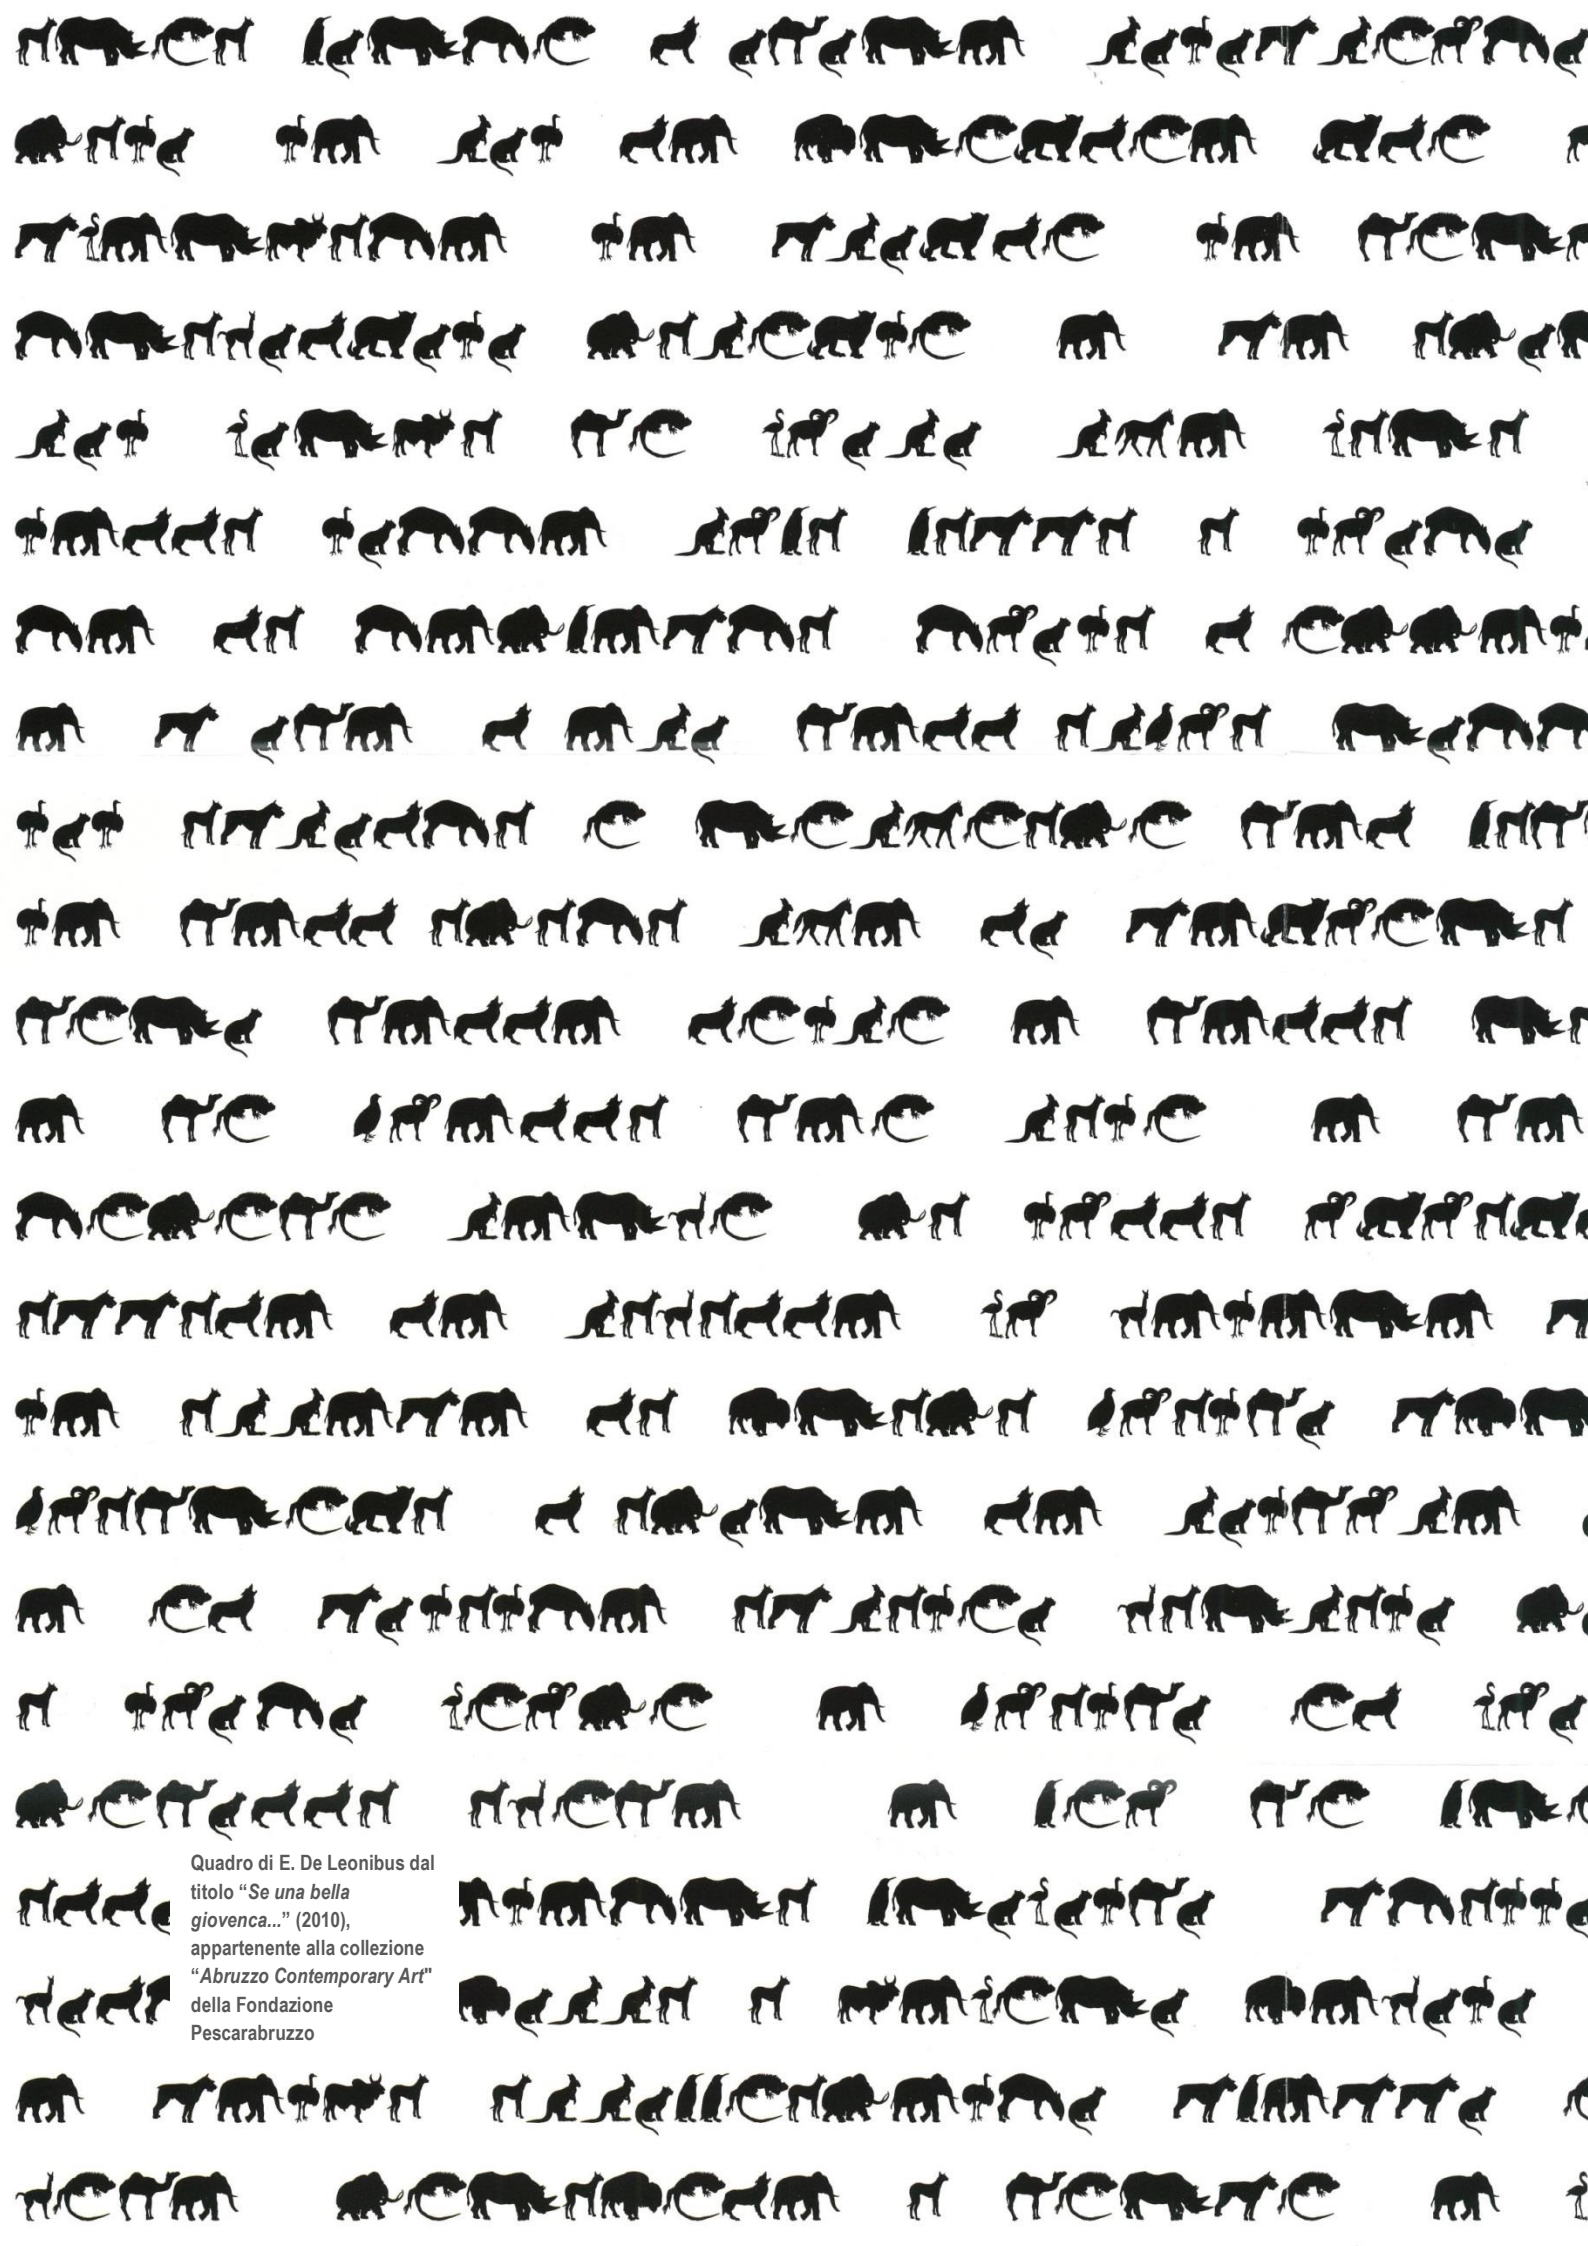 Quadro di E. De Leonibus dal
titolo “Se una bella
giovenca...” (2010),
appartenente alla collezione
“Abruzzo Contemporary Art"
della Fondazione
Pescarabruzzo